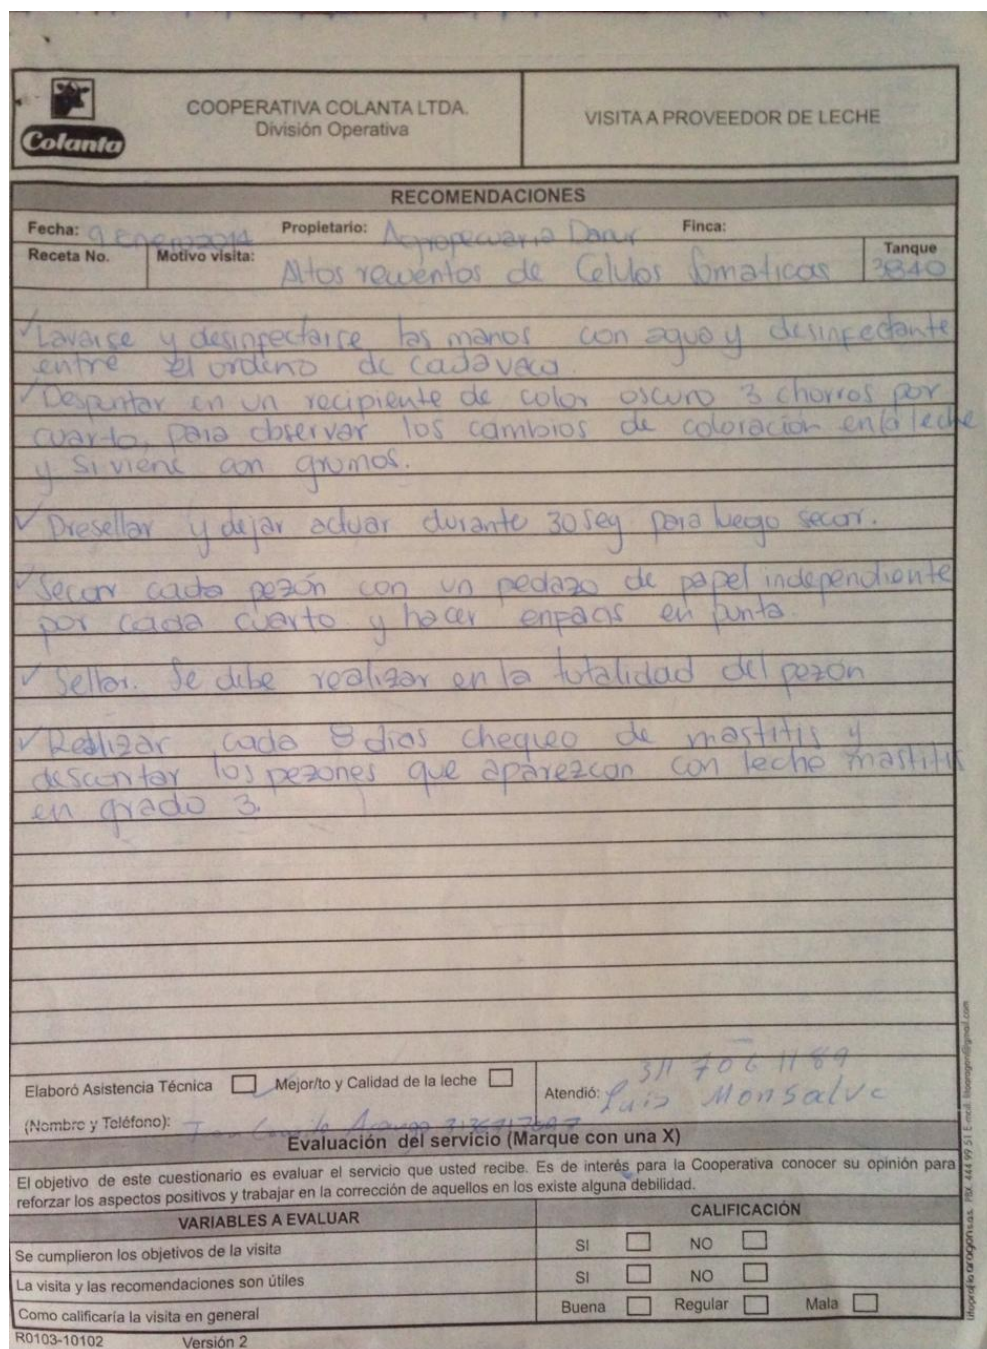 Colanta
COOPERATIVA COLANTA LTDA.
División Operativa
VISITA A PROVEEDOR DE LECHE
RECOMENDACIONES
Fecha: 9 Enero 2014 Propietario: Agropecuaria Danur Finca:
Receta No. Motivo visita: Altos recuentos de Celulas Somaticas Tanque 3840
✓ Lavarse y desinfectarse las manos con agua y desinfectante
entre el ordeño de cada vaca.
✓ Despuntar en un recipiente de color oscuro 3 chorros por
cuarto, para observar los cambios de coloración en la leche
y si viene con grumos.
✓ Presellar y dejar actuar durante 30 seg para luego secar.
✓ Secar cada pezón con un pedazo de papel independiente
por cada cuarto y hacer enfacis en punta.
✓ Sellar. Se debe realizar en la totalidad del pezón
✓ Realizar cada 8 dias chequeo de mastitis y
descartar los pezones que aparezcan con leche mastitis
en grado 3.
Elaboró Asistencia Técnica Mejor/to y Calidad de la leche
311 706 1189
Atendió: Luis Monsalve
(Nombre y Teléfono): Arango
Evaluación del servicio (Marque con una X)
El objetivo de este cuestionario es evaluar el servicio que usted recibe. Es de interés para la Cooperativa conocer su opinión para
reforzar los aspectos positivos y trabajar en la corrección de aquellos en los existe alguna debilidad.
VARIABLES A EVALUAR CALIFICACIÓN
Se cumplieron los objetivos de la visita SI NO
La visita y las recomendaciones son útiles SI NO
Como calificaría la visita en general Buena Regular Mala
R0103-10102 Versión 2
PBX. 444 99 51 E-mail: